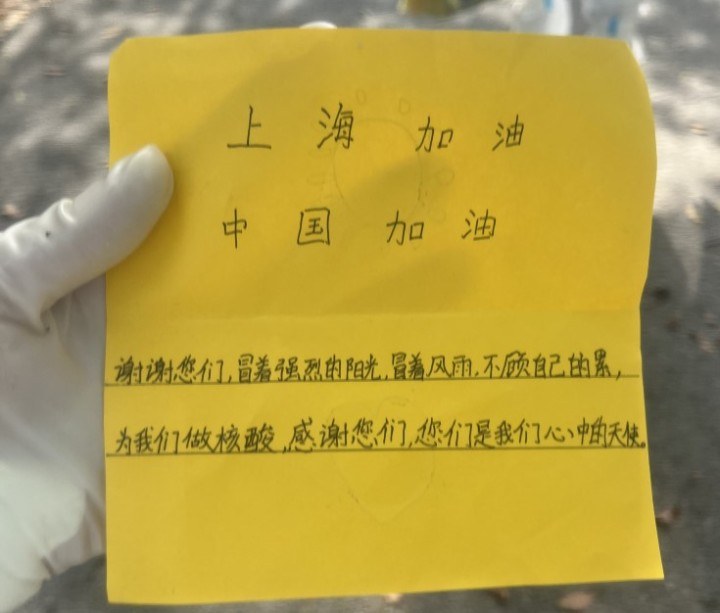 上海加油
中国加油
谢谢您们,冒着强烈的阳光,冒着风雨,不顾自己的累,
为我们做核酸,感谢您们,您们是我们心中的天使。